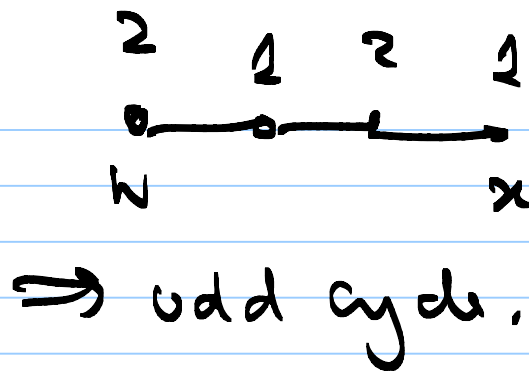 2 1 2 1
w x
⇒ odd cycle.